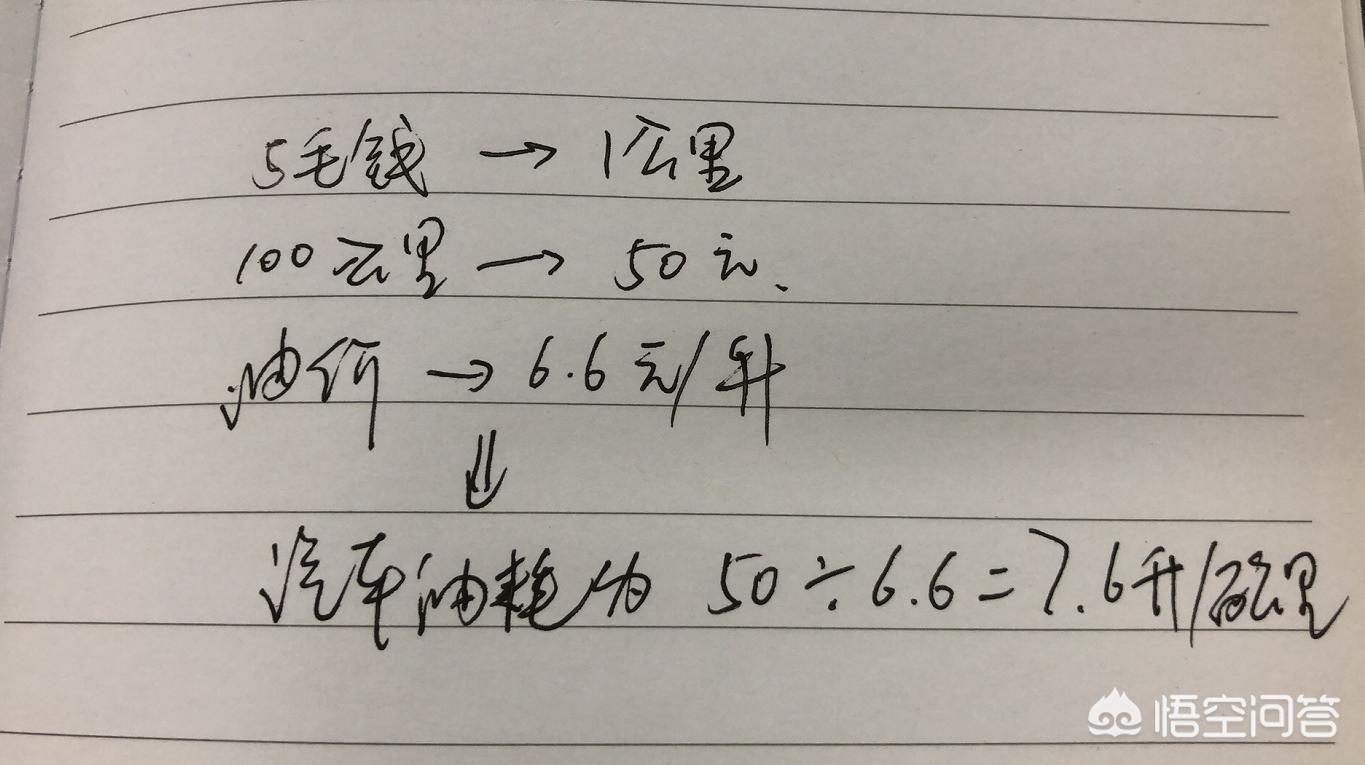 5毛钱 → 1公里
100公里 → 50元.
油价 → 6.6元/升
⇓
汽车油耗为 50÷6.6=7.6升/百公里
悟空问答